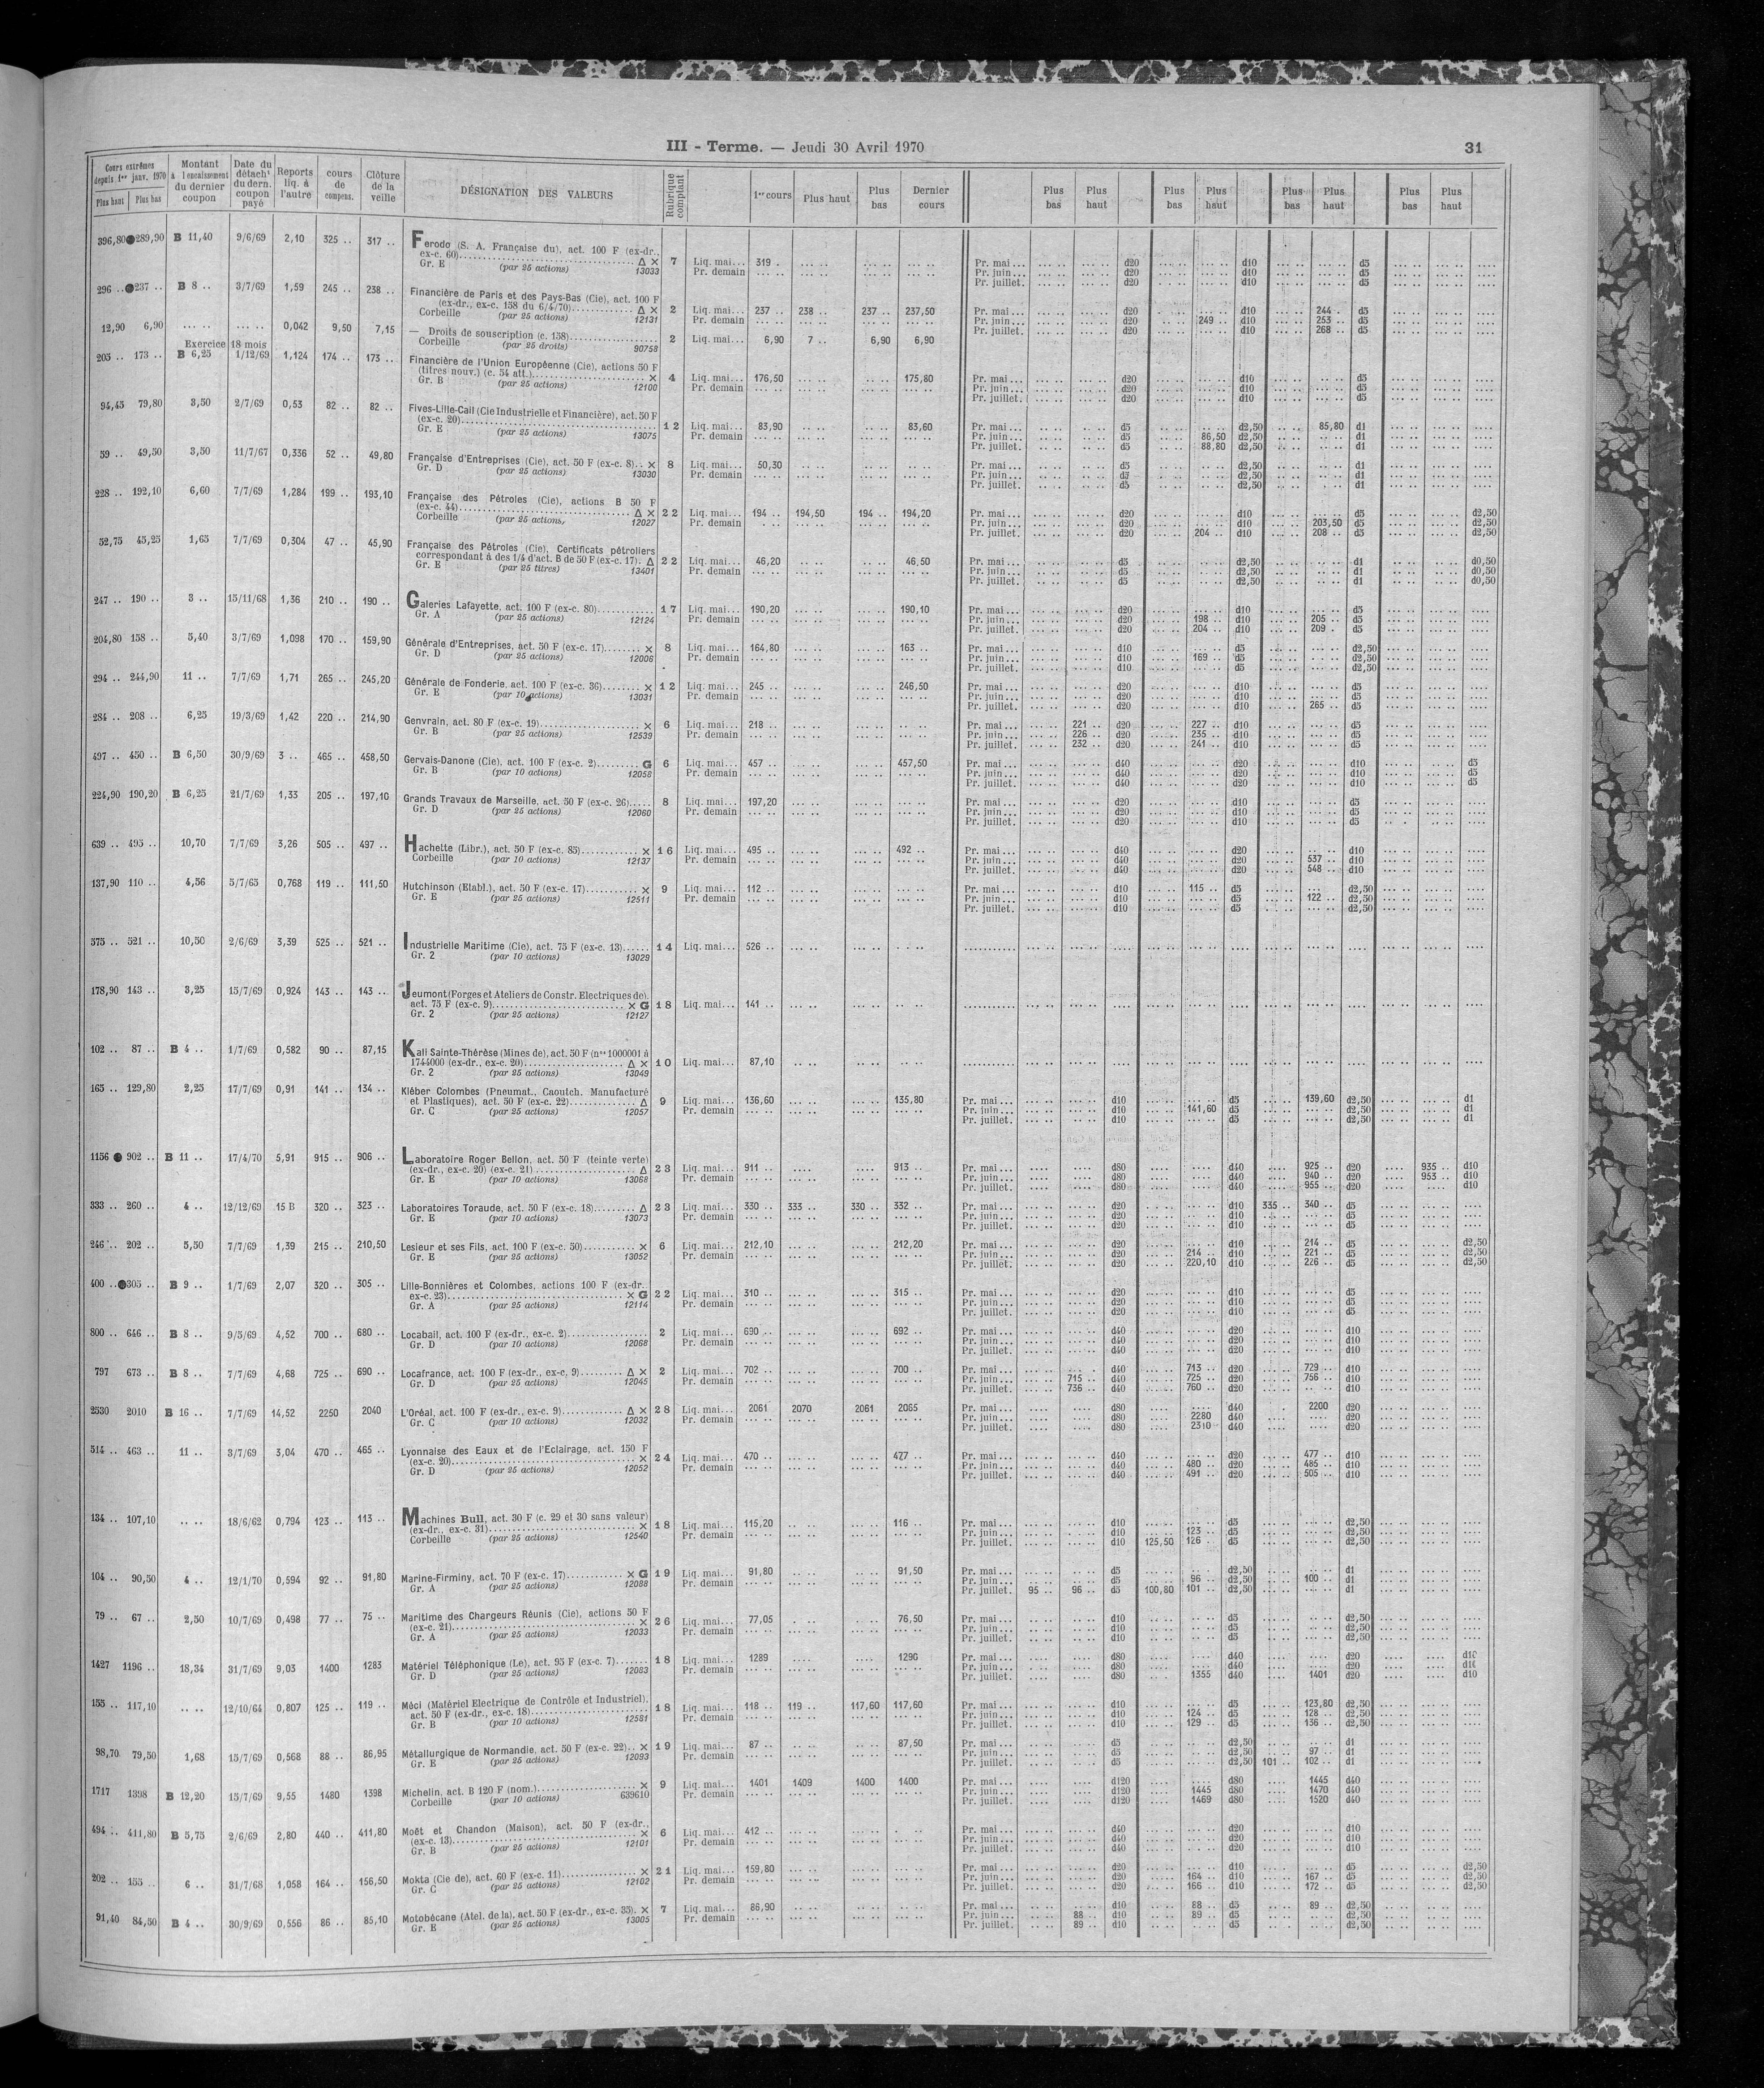 III - Terme. — Jeudi 30 Avril 1970 31
Cours extrêmes depuis 1er janv. 1970 Plus haut Plus bas | Montant à l'encaissement du dernier coupon | Date du détacht du dern. coupon payé | Reports liq. à l'autre | cours de compens. | Clôture de la veille | DÉSIGNATION DES VALEURS | Rubrique comptant | 1er cours | Plus haut | Plus bas | Dernier cours | Plus bas | Plus haut | Plus bas | Plus haut | Plus bas | Plus haut | Plus bas | Plus haut
396,80 289,90 B 11,40 9/6/69 2,10 325 .. 317 .. Ferodo (S. A. Française du), act. 100 F (ex-dr.,
ex-c. 60) Δ × 7 Liq. mai... 319 . Pr. mai... d20 d10 d5
Gr. E (par 25 actions) 13033 Pr. demain Pr. juin... d20 d10 d5
Pr. juillet. d20 d10 d5
296 .. 237 .. B 8 .. 3/7/69 1,59 245 .. 238 .. Financière de Paris et des Pays-Bas (Cie), act. 100 F
(ex-dr., ex-c. 158 du 6/4/70) Δ × 2 Liq. mai... 237 .. 238 .. 237 .. 237,50 Pr. mai... d20 d10 244 .. d5
Corbeille (par 25 actions) 12131 Pr. demain Pr. juin... d20 249 .. d10 253 .. d5
Pr. juillet. d20 d10 268 .. d5
12,90 6,90 0,042 9,50 7,15 — Droits de souscription (c. 158)
Corbeille (par 25 droits) 90758 2 Liq. mai... 6,90 7 .. 6,90 6,90
Exercice 18 mois
205 .. 173 .. B 6,25 1/12/69 1,124 174 .. 173 .. Financière de l'Union Européenne (Cie), actions 50 F
(titres nouv.) (c. 54 att.) × 4 Liq. mai... 176,50 175,80 Pr. mai... d20 d10 d5
Gr. B (par 25 actions) 12100 Pr. demain Pr. juin... d20 d10 d5
Pr. juillet. d20 d10 d5
94,45 79,80 3,50 2/7/69 0,53 82 .. 82 .. Fives-Lille-Cail (Cie Industrielle et Financière), act. 50 F
(ex-c. 20) 12 Liq. mai... 83,90 83,60 Pr. mai... d5 d2,50 85,80 d1
Gr. E (par 25 actions) 13075 Pr. demain Pr. juin... d5 86,50 d2,50 d1
Pr. juillet. d5 88,80 d2,50 d1
59 .. 49,50 3,50 11/7/67 0,336 52 .. 49,80 Française d'Entreprises (Cie), act. 50 F (ex-c. 8).. × 8 Liq. mai... 50,30 Pr. mai... d5 d2,50 d1
Gr. D (par 25 actions) 13030 Pr. demain Pr. juin... d5 d2,50 d1
Pr. juillet. d5 d2,50 d1
228 .. 192,10 6,60 7/7/69 1,284 199 .. 193,10 Française des Pétroles (Cie), actions B 50 F
(ex-c. 44) Δ × 22 Liq. mai... 194 .. 194,50 194 .. 194,20 Pr. mai... d20 d10 d5 d2,50
Corbeille (par 25 actions, 12027 Pr. demain Pr. juin... d20 d10 203,50 d5 d2,50
Pr. juillet. d20 204 .. d10 208 .. d5 d2,50
52,75 45,25 1,65 7/7/69 0,304 47 .. 45,90 Française des Pétroles (Cie), Certificats pétroliers
correspondant à des 1/4 d'act. B de 50 F (ex-c. 17). Δ 22 Liq. mai... 46,20 46,50 Pr. mai... d5 d2,50 d1 d0,50
Gr. E (par 25 titres) 13401 Pr. demain Pr. juin... d5 d2,50 d1 d0,50
Pr. juillet. d5 d2,50 d1 d0,50
247 .. 190 .. 3 .. 15/11/68 1,36 210 .. 190 .. Galeries Lafayette, act. 100 F (ex-c. 80) 17 Liq. mai... 190,20 190,10 Pr. mai... d20 d10 d5
Gr. A (par 25 actions) 12124 Pr. demain Pr. juin... d20 198 .. d10 205 .. d5
Pr. juillet. d20 204 .. d10 209 . d5
204,80 158 .. 5,40 3/7/69 1,098 170 .. 159,90 Générale d'Entreprises, act. 50 F (ex-c. 17) × 8 Liq. mai... 164,80 163 .. Pr. mai... d10 d5 d2,50
Gr. D (par 25 actions) 12006 Pr. demain Pr. juin... d10 169 .. d5 d2,50
Pr. juillet. d10 d5 d2,50
294 .. 244,90 11 .. 7/7/69 1,71 265 .. 245,20 Générale de Fonderie, act. 100 F (ex-c. 36) × 12 Liq. mai... 245 .. 246,50 Pr. mai... d20 d10 d5
Gr. E (par 10 actions) 13031 Pr. demain Pr. juin... d20 d10 d5
Pr. juillet. d20 d10 265 .. d5
284 .. 208 .. 6,25 19/3/69 1,42 220 .. 214,90 Genvrain, act. 80 F (ex-c. 19) × 6 Liq. mai... 218 .. Pr. mai... 221 .. d20 227 .. d10 d5
Gr. B (par 25 actions) 12539 Pr. demain Pr. juin... 226 .. d20 235 .. d10 d5
Pr. juillet. 232 .. d20 241 .. d10 d5
497 .. 450 .. B 6,50 30/9/69 3 .. 465 .. 458,50 Gervais-Danone (Cie), act. 100 F (ex-c. 2) G 6 Liq. mai... 457 .. 457,50 Pr. mai... d40 d20 d10 d5
Gr. B (par 10 actions) 12058 Pr. demain Pr. juin... d40 d20 d10 d5
Pr. juillet. d40 d20 d10 d5
224,90 190,20 B 6,25 21/7/69 1,33 205 .. 197,10 Grands Travaux de Marseille, act. 50 F (ex-c. 26) 8 Liq. mai... 197,20 Pr. mai... d20 d10 d5
Gr. D (par 25 actions) 12060 Pr. demain Pr. juin... d20 d10 d5
Pr. juillet. d20 d10 d5
639 .. 495 .. 10,70 7/7/69 3,26 505 .. 497 .. Hachette (Libr.), act. 50 F (ex-c. 85) × 16 Liq. mai... 495 .. 492 .. Pr. mai... d40 d20 d10
Corbeille (par 10 actions) 12137 Pr. demain Pr. juin... d40 d20 537 .. d10
Pr. juillet. d40 d20 548 .. d10
137,90 110 .. 4,56 5/7/65 0,768 119 .. 111,50 Hutchinson (Etabl.), act. 50 F (ex-c. 17) × 9 Liq. mai... 112 .. Pr. mai... d10 115 .. d5 d2,50
Gr. E (par 25 actions) 12511 Pr. demain Pr. juin... d10 d5 122 .. d2,50
Pr. juillet. d10 d5 d2,50
575 .. 521 .. 10,50 2/6/69 3,39 525 .. 521 .. Industrielle Maritime (Cie), act. 75 F (ex-c. 13) 14 Liq. mai... 526 ..
Gr. 2 (par 10 actions) 13029
178,90 143 .. 3,25 15/7/69 0,924 143 .. 143 .. Jeumont (Forges et Ateliers de Constr. Electriques de),
act. 75 F (ex-c. 9) × G 18 Liq. mai... 141 ..
Gr. 2 (par 25 actions) 12127
102 .. 87 .. B 4 .. 1/7/69 0,582 90 .. 87,15 Kali Sainte-Thérèse (Mines de), act. 50 F (nos 1000001 à
1744000 (ex-dr., ex-c. 20) Δ × 10 Liq. mai... 87,10
Gr. 2 (par 25 actions) 13049
165 .. 129,80 2,25 17/7/69 0,91 141 .. 134 .. Kléber Colombes (Pneumat., Caoutch. Manufacturé
et Plastiques), act. 50 F (ex-c. 22) Δ 9 Liq. mai... 136,60 135,80 Pr. mai... d10 d5 139,60 d2,50 d1
Gr. C (par 25 actions) 12057 Pr. demain Pr. juin... d10 141,60 d5 d2,50 d1
Pr. juillet. d10 d5 d2,50 d1
1156 902 .. B 11 .. 17/4/70 5,91 915 .. 906 .. Laboratoire Roger Bellon, act. 50 F (teinte verte)
(ex-dr., ex-c. 20) (ex-c. 21) Δ 23 Liq. mai... 911 .. 913 .. Pr. mai... d80 d40 925 .. d20 935 .. d10
Gr. E (par 10 actions) 13068 Pr. demain Pr. juin... d80 d40 940 .. d20 953 .. d10
Pr. juillet. d80 d40 955 .. d20 d10
333 .. 260 .. 4 .. 12/12/69 15 B 320 .. 323 .. Laboratoires Toraude, act. 50 F (ex-c. 18) Δ 23 Liq. mai... 330 .. 333 .. 330 .. 332 .. Pr. mai... d20 d10 335 .. 340 .. d5
Gr. E (par 10 actions) 13073 Pr. demain Pr. juin... d20 d10 d5
Pr. juillet. d20 d10 d5
246 .. 202 .. 5,50 7/7/69 1,39 215 .. 210,50 Lesieur et ses Fils, act. 100 F (ex-c. 50) × 6 Liq. mai... 212,10 212,20 Pr. mai... d20 d10 214 .. d5 d2,50
Gr. E (par 25 actions) 13052 Pr. demain Pr. juin... d20 214 .. d10 221 .. d5 d2,50
Pr. juillet. d20 220,10 d10 226 .. d5 d2,50
400 .. 305 .. B 9 .. 1/7/69 2,07 320 .. 305 .. Lille-Bonnières et Colombes, actions 100 F (ex-dr.
ex-c. 23) × G 22 Liq. mai... 310 .. 315 .. Pr. mai... d20 d10 d5
Gr. A (par 25 actions) 12114 Pr. demain Pr. juin... d20 d10 d5
Pr. juillet. d20 d10 d5
800 .. 646 .. B 8 .. 9/5/69 4,52 700 .. 680 .. Locabail, act. 100 F (ex-dr., ex-c. 2) 2 Liq. mai... 690 .. 692 .. Pr. mai... d40 d20 d10
Gr. D (par 10 actions) 12068 Pr. demain Pr. juin... d40 d20 d10
Pr. juillet. d40 d20 d10
797 673 .. B 8 .. 7/7/69 4,68 725 .. 690 .. Locafrance, act. 100 F (ex-dr., ex-c. 9) Δ × 2 Liq. mai... 702 .. 700 .. Pr. mai... d40 713 .. d20 729 .. d10
Gr. D (par 25 actions) 12045 Pr. demain Pr. juin... 715 .. d40 725 .. d20 756 .. d10
Pr. juillet. 736 .. d40 760 .. d20 d10
2530 2010 B 16 .. 7/7/69 14,52 2250 2040 L'Oréal, act. 100 F (ex-dr., ex-c. 9) Δ × 28 Liq. mai... 2061 2070 2061 2065 Pr. mai... d80 d40 2200 d20
Gr. C (par 10 actions) 12032 Pr. demain Pr. juin... d80 2280 d40 d20
Pr. juillet. d80 2310 d40 d20
514 .. 463 .. 11 .. 3/7/69 3,04 470 .. 465 .. Lyonnaise des Eaux et de l'Eclairage, act. 150 F
(ex-c. 20) × 24 Liq. mai... 470 .. 477 .. Pr. mai... d40 d20 477 .. d10
Gr. D (par 25 actions) 12052 Pr. demain Pr. juin... d40 480 .. d20 485 .. d10
Pr. juillet. d40 491 .. d20 505 .. d10
134 .. 107,10 18/6/62 0,794 123 .. 113 .. Machines Bull, act. 30 F (c. 29 et 30 sans valeur)
(ex-dr., ex-c. 31) × 18 Liq. mai... 115,20 116 .. Pr. mai... d10 d5 d2,50
Corbeille (par 25 actions) 12540 Pr. demain Pr. juin... d10 123 .. d5 d2,50
Pr. juillet. d10 125,50 126 .. d5 d2,50
104 .. 90,50 4 .. 12/1/70 0,594 92 .. 91,80 Marine-Firminy, act. 70 F (ex-c. 17) × G 19 Liq. mai... 91,80 91,50 Pr. mai... d5 d2,50 d1
Gr. A (par 25 actions) 12088 Pr. demain Pr. juin... d5 96 .. d2,50 100 .. d1
Pr. juillet. 95 .. 96 .. d5 100,80 101 .. d2,50 d1
79 .. 67 .. 2,50 10/7/69 0,498 77 .. 75 .. Maritime des Chargeurs Réunis (Cie), actions 50 F
(ex-c. 21) × 26 Liq. mai... 77,05 76,50 Pr. mai... d10 d5 d2,50
Gr. A (par 25 actions) 12033 Pr. demain Pr. juin... d10 d5 d2,50
Pr. juillet. d10 d5 d2,50
1427 1196 .. 18,34 31/7/69 9,03 1400 1283 Matériel Téléphonique (Le), act. 95 F (ex-c. 7) 18 Liq. mai... 1289 1296 Pr. mai... d80 d40 d20 d10
Gr. D (par 25 actions) 12083 Pr. demain Pr. juin... d80 d40 d20
Pr. juillet. d80 1355 d40 1401 d20 d10
155 .. 117,10 12/10/64 0,807 125 .. 119 .. Méci (Matériel Electrique de Contrôle et Industriel),
act. 50 F (ex-dr., ex-c. 18) 18 Liq. mai... 118 .. 119 .. 117,60 117,60 Pr. mai... d10 d5 123,80 d2,50
Gr. B (par 10 actions) 12581 Pr. demain Pr. juin... d10 124 .. d5 128 .. d2,50
Pr. juillet. d10 129 .. d5 136 .. d2,50
98,70 79,50 1,68 15/7/69 0,568 88 .. 86,95 Métallurgique de Normandie, act. 50 F (ex-c. 22).. × 19 Liq. mai... 87 .. 87,50 Pr. mai... d5 d2,50 d1
Gr. E (par 25 actions) 12093 Pr. demain Pr. juin... d5 d2,50 97 .. d1
Pr. juillet. d5 d2,50 101 .. 102 .. d1
1717 1398 B 12,20 15/7/69 9,55 1480 1398 Michelin, act. B 120 F (nom.) × 9 Liq. mai... 1401 1409 1400 1400 Pr. mai... d120 d80 1445 d40
Corbeille (par 10 actions) 639610 Pr. demain Pr. juin... d120 1445 d80 1470 d40
Pr. juillet. d120 1469 d80 1520 d40
494 .. 411,80 B 5,75 2/6/69 2,80 440 .. 411,80 Moët et Chandon (Maison), act. 50 F (ex-dr.,
(ex-c. 13) × 6 Liq. mai... 412 .. Pr. mai... d40 d20 d10
Gr. B (par 25 actions) 12101 Pr. demain Pr. juin... d40 d20 d10
Pr. juillet. d40 d20 d10
202 .. 155 .. 6 .. 31/7/68 1,058 164 .. 156,50 Mokta (Cie de), act. 60 F (ex-c. 11) × 21 Liq. mai... 159,80 Pr. mai... d20 d10 d5 d2,50
Gr. C (par 25 actions) 12102 Pr. demain Pr. juin... d20 164 .. d10 167 .. d5 d2,50
Pr. juillet. d20 166 .. d10 172 .. d5 d2,50
91,40 84,50 B 4 .. 30/9/69 0,556 86 .. 85,10 Motobécane (Atel. de la), act. 50 F (ex-dr., ex-c. 35). × 7 Liq. mai... 86,90 Pr. mai... d10 88 .. d5 89 .. d2,50
Gr. E (par 25 actions) 13005 Pr. demain Pr. juin... 88 .. d10 89 .. d5 d2,50
Pr. juillet. 89 .. d10 d5 d2,50